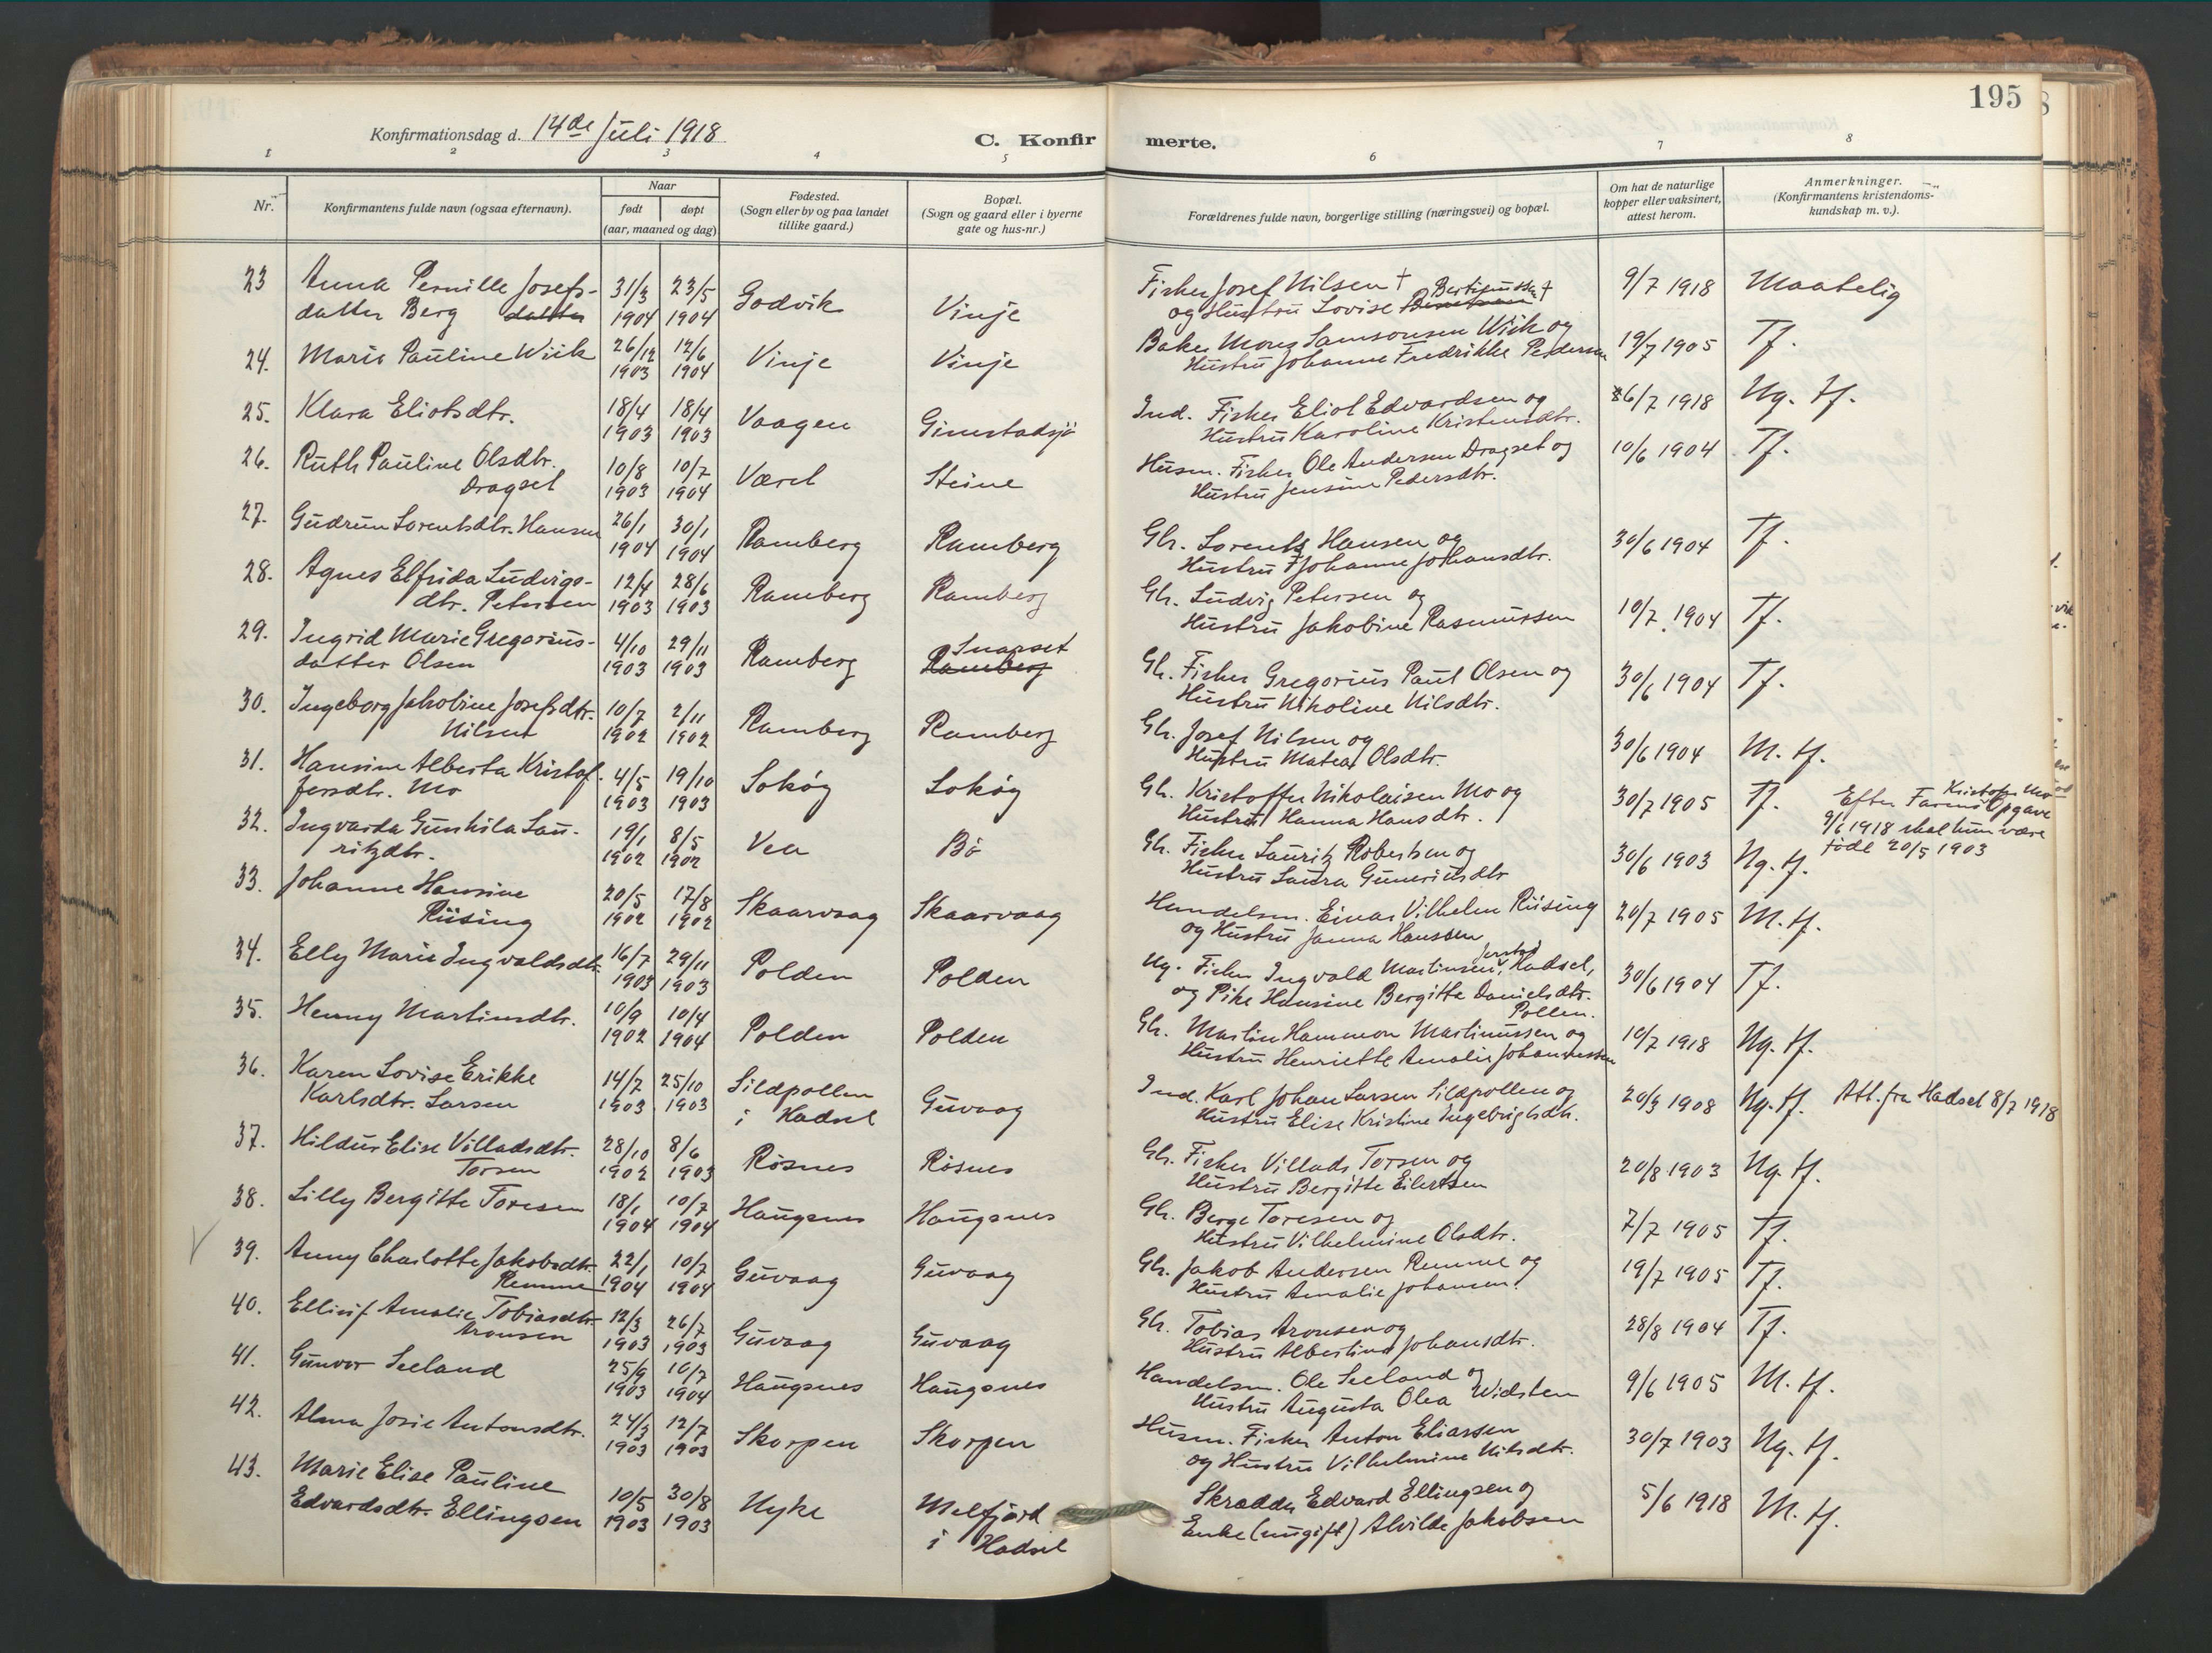 195
Konfirmationsdag d. 14de Juli 1918
C. Konfir merte.
1 2 3 4 5 6 7 8
Nr.
Konfirmantens fulde navn (ogsaa efternavn).
Naar
født døpt
(aar, maaned og dag)
Fødested.
(Sogn eller by og paa landet
tillike gaard.)
Bopæl.
(Sogn og gaard eller i byerne
gate og hus-nr.)
Forældrenes fulde navn, borgerlige stilling (næringsvei) og bopæl.
Om hat de naturlige
kopper eller vaksinert,
attest herom.
Anmerkninger.
(Konfirmantens kristendoms-
kundskap m. v.).
23 Anna Pernille Josefs- 31/3 23/5 Godvik Vinje Fisker Josef Nilsen † Bertinussen † 9/7 1918 Maatelig
datter Berg datter 1904 1904 og Hustru Lovise
24. Marie Pauline Wiik 26/12 12/6 Vinje Vinje Baker Mons Samsonsen Wiik og 19/7 1905 Tf.
1903 1904 Hustru Johanne Fredrikke Pedersen
25. Klara Eliotsdtr. 18/4 18/4 Vaagen Gimstadsjø Ind. Fisker Eliot Edvardsen og 26/7 1918 Ng. tf.
1903 1903 Hustru Karoline Kristensdtr.
26. Ruth Pauline Olsdtr. 10/8 10/7 Været Steine Husm. Fisker Ole Andersen Dragset og 10/6 1904 Tf.
Dragset 1903 1904 Hustru Jensine Pedersdtr.
27. Gudrun Lorentsdtr. Hansen 26/1 30/1 Ramberg Ramberg Gbr. Lorents Hansen og 30/6 1904 Tf.
1904 1904 Hustru Johanne Johansdtr.
28. Agnes Elfrida Ludvigs- 12/4 28/6 Ramberg Ramberg Gbr. Ludvig Petersen og 10/7 1904 Tf.
dtr. Petersen 1903 1903 Hustru Jakobine Rasmussen
29. Ingrid Marie Gregorius- 4/10 29/11 Ramberg Snarset Gbr. Fisker Gregorius Paul Olsen og 30/6 1904 Tf.
datter Olsen 1903 1903 Ramberg Hustru Nikoline Nilsdtr.
30. Ingeborg Jakobine Josefsdtr. 10/7 2/11 Ramberg Ramberg Gbr. Josef Nilsen og 30/6 1904 M. tf.
Nilsen 1902 1902 Hustru Matea Olsdtr.
31. Hansine Alberta Kristof- 4/5 19/10 Sokøy Sokøy Gbr. Kristoffer Nikolaisen Mo og 30/7 1905 Tf. Efter Farens Kristofer Mo Opgave
fersdtr. Mo 1903 1903 Hustru Hanna Hansdtr. 9/6 1918 skal hun være
født 20/5 1903
32. Ingvarda Gunhila Lau- 19/1 8/5 Vea Bø Gbr. Fisker Lauritz Robertsen og 30/6 1903 Ng. tf.
ritzdtr. 1902 1902 Hustru Laura Guneriusdtr
33. Johanne Hansine 20/5 17/8 Skaarvaag Skaarvaag Handelsm. Einar Vilhelm Riising 20/7 1905 M. tf.
Riising 1902 1902 og Hustru Janna Hanssen
34. Elly Marie Ingvaldsdtr. 16/7 29/11 Polden Polden Ug. Fisker Ingvald Martinsen, Hadsel, 30/6 1904 Tf.
1903 1903 og Pike Hansine Bergitte Danielsdtr.
Pollen.
35. Henny Martinsdtr. 10/9 10/4 Polden Polden Gbr. Martin Hammon Martinussen og 10/7 1918 Ng. tf.
1902 1904 Hustru Henriette Amalie Johannessen
36. Karen Lovise Erikke 14/7 25/10 Sildpollen Guvaag Ind. Karl Johan Larsen Sildpollen og 20/3 1908 Ng. tf. Att. fra Hadsel 8/7 1918
Karlsdtr. Larsen 1903 1903 i Hadsel Hustru Elise Kristine Ingebrigtsdtr.
37. Hildur Elise Villadsdtr. 28/10 8/6 Risnes Risnes Gbr. Fisker Villads Torsen og 20/8 1903 Ng. tf.
Torsen 1902 1903 Hustru Bergitte Eilertsen
38. Lilly Bergitte Toresen 18/1 10/7 Haugsnes Haugsnes Gbr. Berge Toresen og 7/7 1905 Tf.
1904 1904 Hustru Vilhelmine Olsdtr.
39. Anny Charlotte Jakobsdtr. 22/1 10/7 Guvaag Guvaag Gbr. Jakob Andersen Remme og 19/7 1905 Tf.
Remme 1904 1904 Hustru Amalie Johansen.
40. Ellinf Amalie Tobiasdtr. 12/3 26/7 Guvaag Guvaag Gbr. Tobias Aronsen og 28/8 1904 Tf.
Aronsen 1903 1903 Hustru Albertine Johansdtr.
41. Gunvor Seeland 25/9 10/7 Haugsnes Haugsnes Handelsm. Ole Seeland og 9/6 1905 M. tf.
1903 1904 Hustru Augusta Olea Widsten
42. Alma Josie Antonsdtr. 24/3 12/7 Skorpen Skorpen Husm. Fisker Anton Eliassen 30/7 1903 Ng. tf.
1903 1903 og Hustru Vilhelmine Nilsdtr.
43. Marie Elise Pauline 10/5 30/8 Nyke Melfjord Skrædder Edvard Ellingsen og 5/6 1918 M. tf.
Edvardsdtr. Ellingsen 1903 1903 i Hadsel Enke (ungift) Alvilde Jakobsen